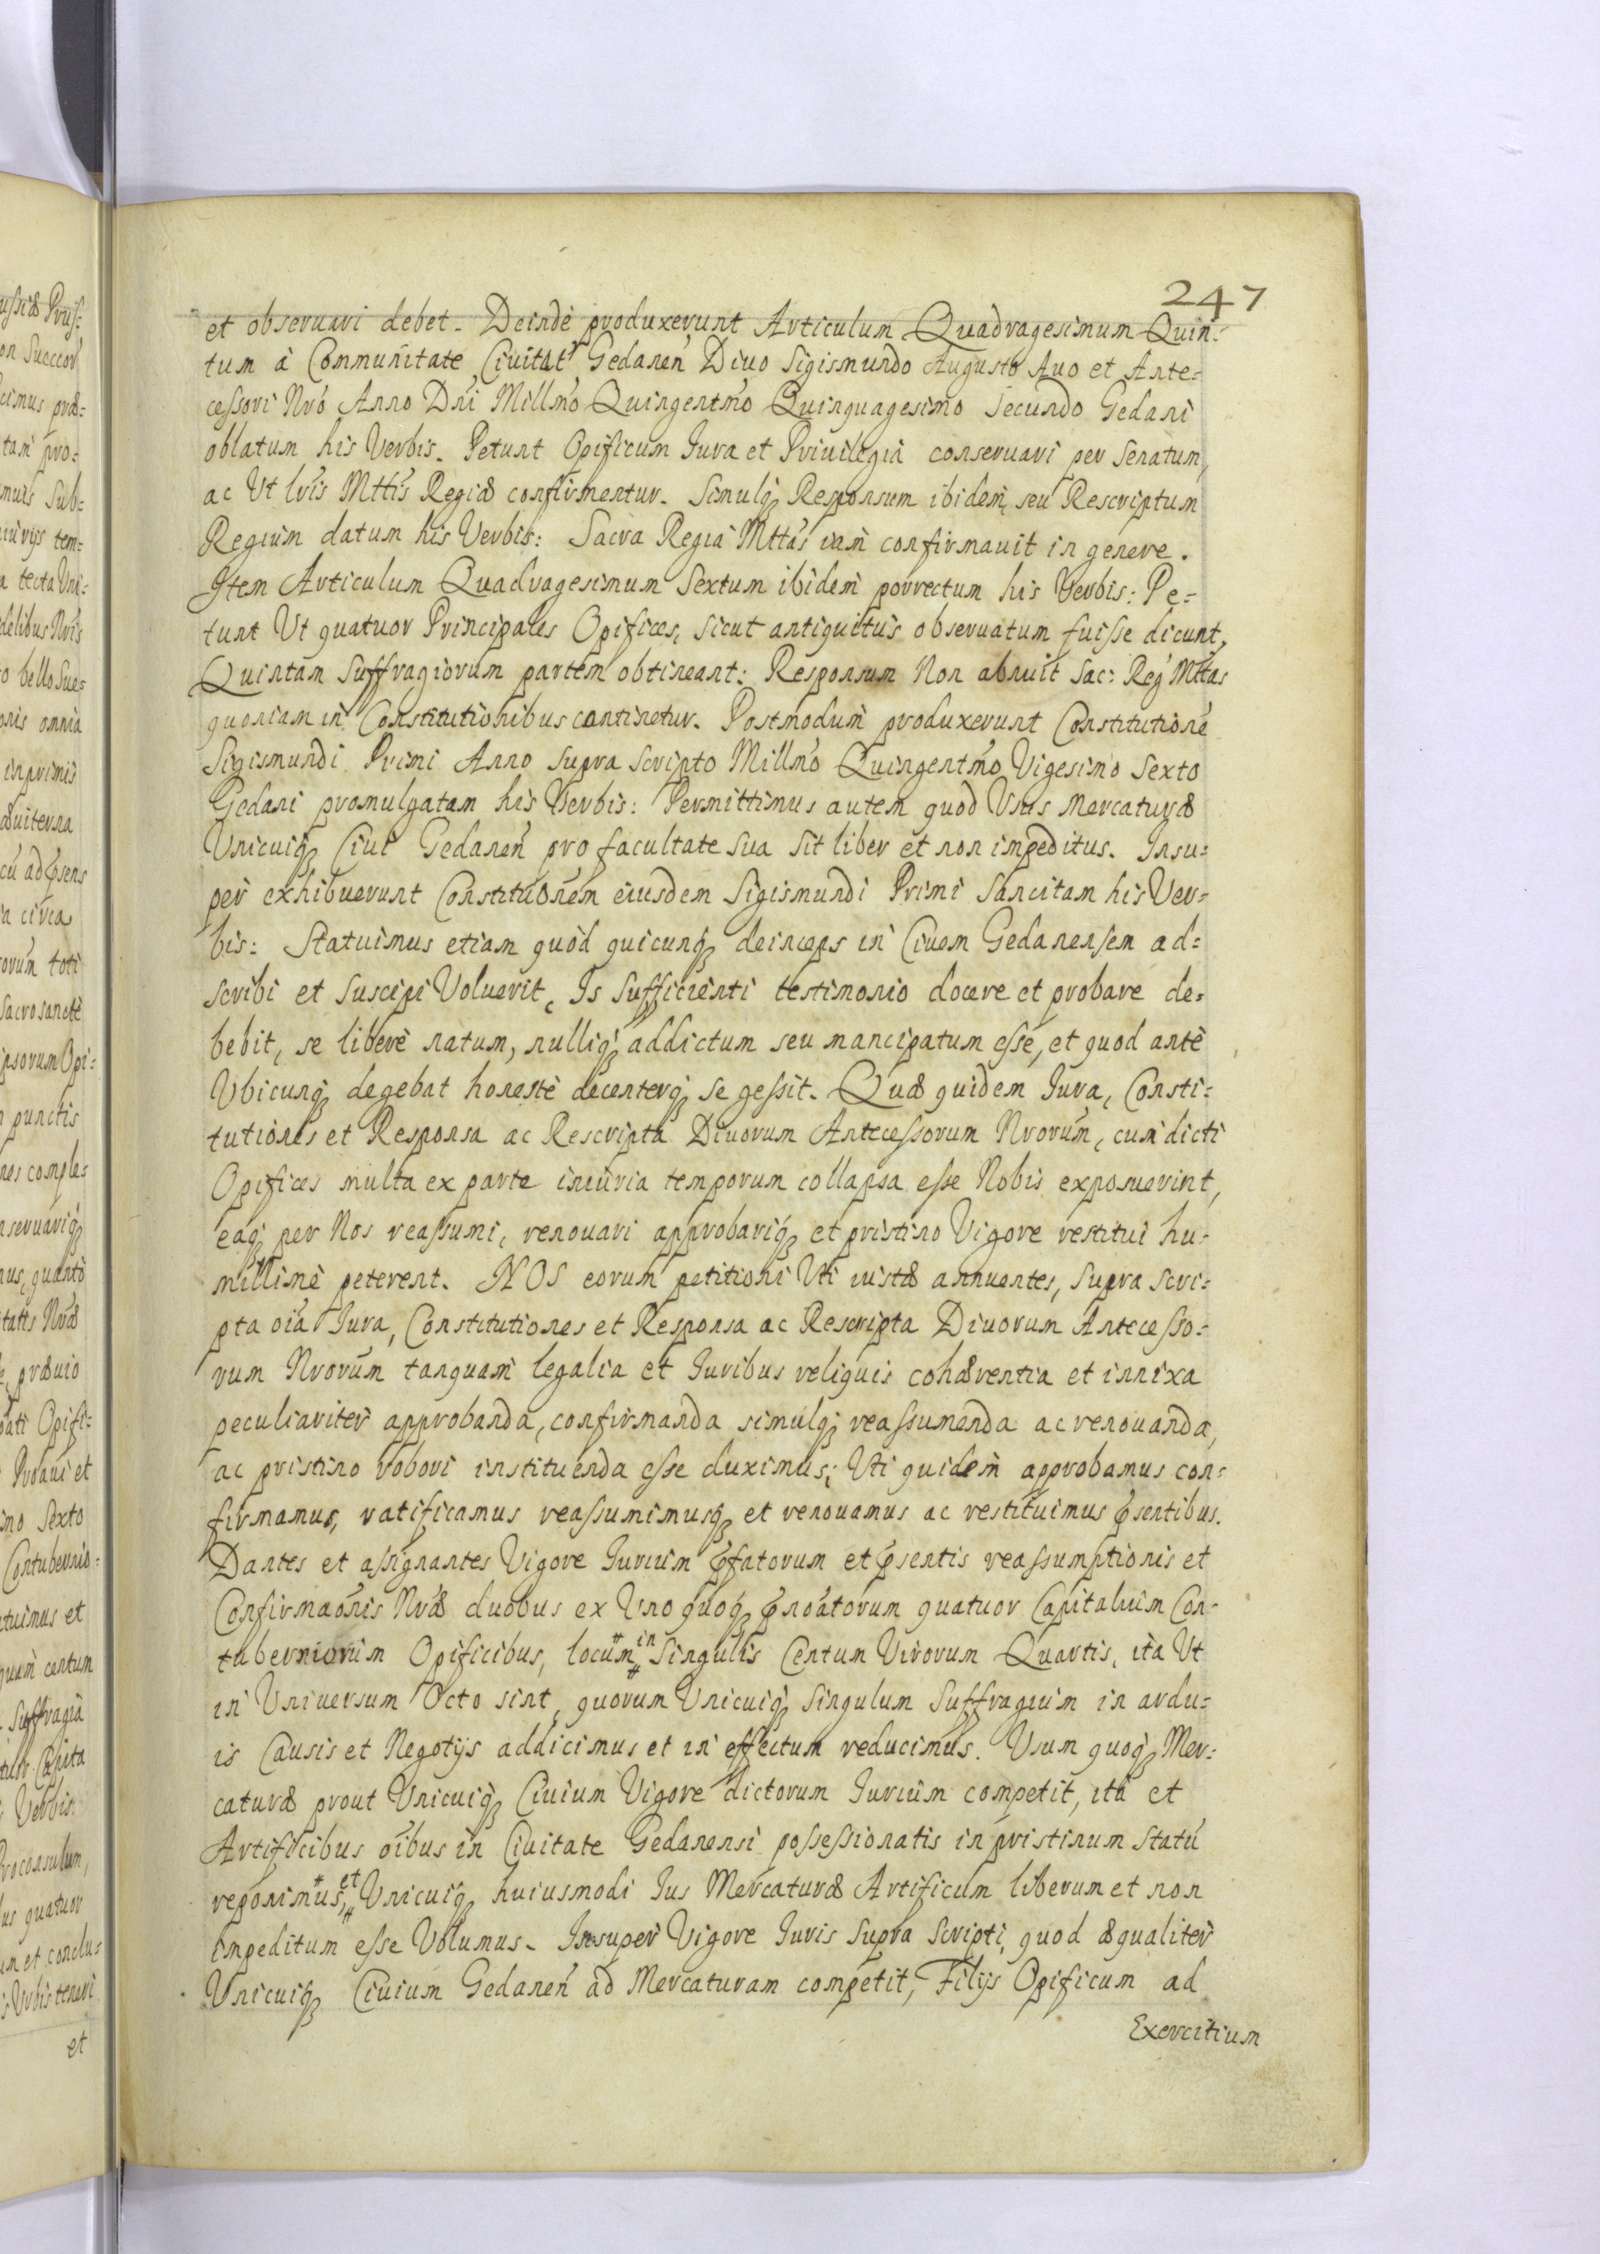 247
et obseruari debet. Deindè produxerunt Articulum Quadragesimum Quin-
tum à Communitate Ciuitat Gedanen Diuo Sigismundo Augusto Auo et Ante-
cessori Nrõ Anno Dni Millmo Quingentmo Quinquagesimo Secundo Gedani
oblatum his Verbis. Petunt Opificum Jura et Priuilegia conseruari per Senatum,
ac Ut lris Mttis Regiæ confirmentur. Simulq Responsum ibidem, seu Rescriptum
Regium datum his Verbis: Sacra Regia Mttas iam confirmauit in genere.
Item Articulum Quadragesimum Sextum ibidem porrectum his Verbis: Pe-
tunt Ut quatuor Principales Opifices, sicut antiquitus obseruatum fuisse dicunt,
Quintam suffragiorum partem obtineant: Responsum Non abnuit Sac: Reg Mttas
quoniam in Constitutionibus continetur. Postmodum produxerunt Constitutionẽ
Sigismundi Primi Anno supra scripto Millmo Quingentmo Vigesimo Sexto
Gedani promulgatam his Verbis: Permittimus autem quod Usus Mercaturæ
Unicuiq Ciui Gedanen pro facultate sua sit liber et non impeditus. Insu-
per exhibuerunt Constituõnem eiusdem Sigismundi Primi Sancitam his Ver-
bis: Statuimus etiam quòd quicunq deinceps in Ciuem Gedanensem ad-
scribi et suscipi Voluerit, Is sufficienti testimonio docere et probare de-
bebit, se liberè natum, nulliq addictum seu mancipatum esse, et quod antè
Ubicunq degebat honestè decenterq se gessit. Quæ quidem Jura, Consti-
tutiones et Responsa ac Rescripta Diuorum Antecessorum Nrorum, cum dicti
Opifices multa ex parte iniuria temporum collapsa esse Nobis exposuerint,
eaq per Nos reassumi, renouari approbariq et pristino Vigore restitui hu-
millimè peterent. NOS eorum petitioni Uti iustæ annuentes, supra scri-
pta oia Jura, Constitutiones et Responsa ac Rescripta Diuorum Antecesso-
rum Nrorum tanquam legalia et Juribus reliquis cohærentia et innixa
peculiariter approbanda, confirmanda simulq reassumenda ac renouanda,
ac pristino robori instituenda esse duximus; Uti quidem approbamus con-
firmamus, ratificamus reassumimusq et renouamus ac restituimus psentibus.
Dantes et assignantes Vigore Jurium pfatorum et psentis reassumptionis et
Confirmaõnis Nræ duobus ex Uno quoq pnoatorum quatuor Capitalium Con-
tuberniorum Opificibus, locum in Singulis Centum Virorum Quartis, ita Ut
in Uniuersum Octo sint, quorum Unicuiq singulum suffragium in ardu-
is Causis et Negotijs addicimus et in effectum reducimus. Usum quoq Mer-
caturæ prout Unicuiq Ciuium Vigore dictorum Jurium competit, ita et
Artificibus oibus in Ciuitate Gedanensi possessionatis in pristinum statũ
reponimus, et Unicuiq huiusmodi Jus Mercaturæ Artificum liberum et non
impeditum esse Volumus. Insuper Vigore Juris supra scripti, quod æqualiter
Unicuiq Ciuium Gedanen ad Mercaturam competit, Filijs Opificum ad
Exercitium